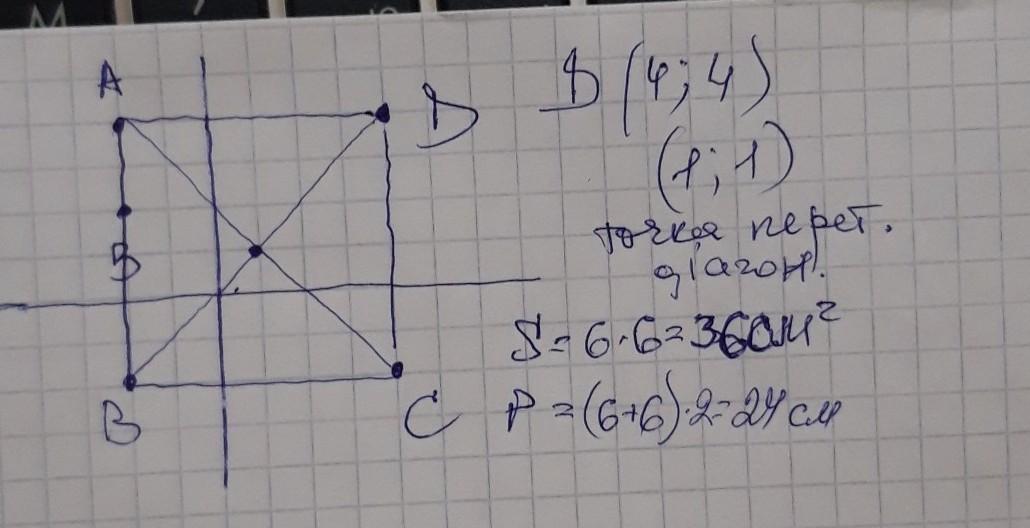 A
D
D (4; 4)
(1; 1)
точка перет.
діагон.
B
S = 6·6 = 36 см²
B
C
P = (6+6)·2 = 24 см